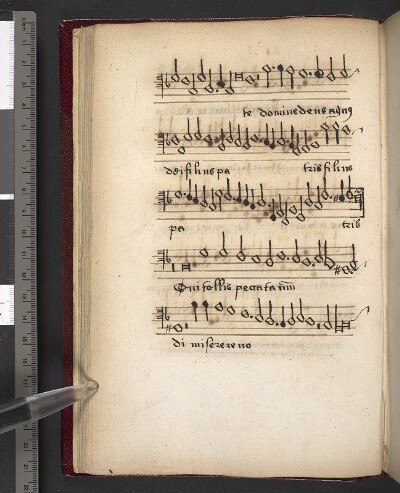 te domine deus agnus
dei filius pa tris filius
pa tris
Qui tollis peccata mūn
di miserere no